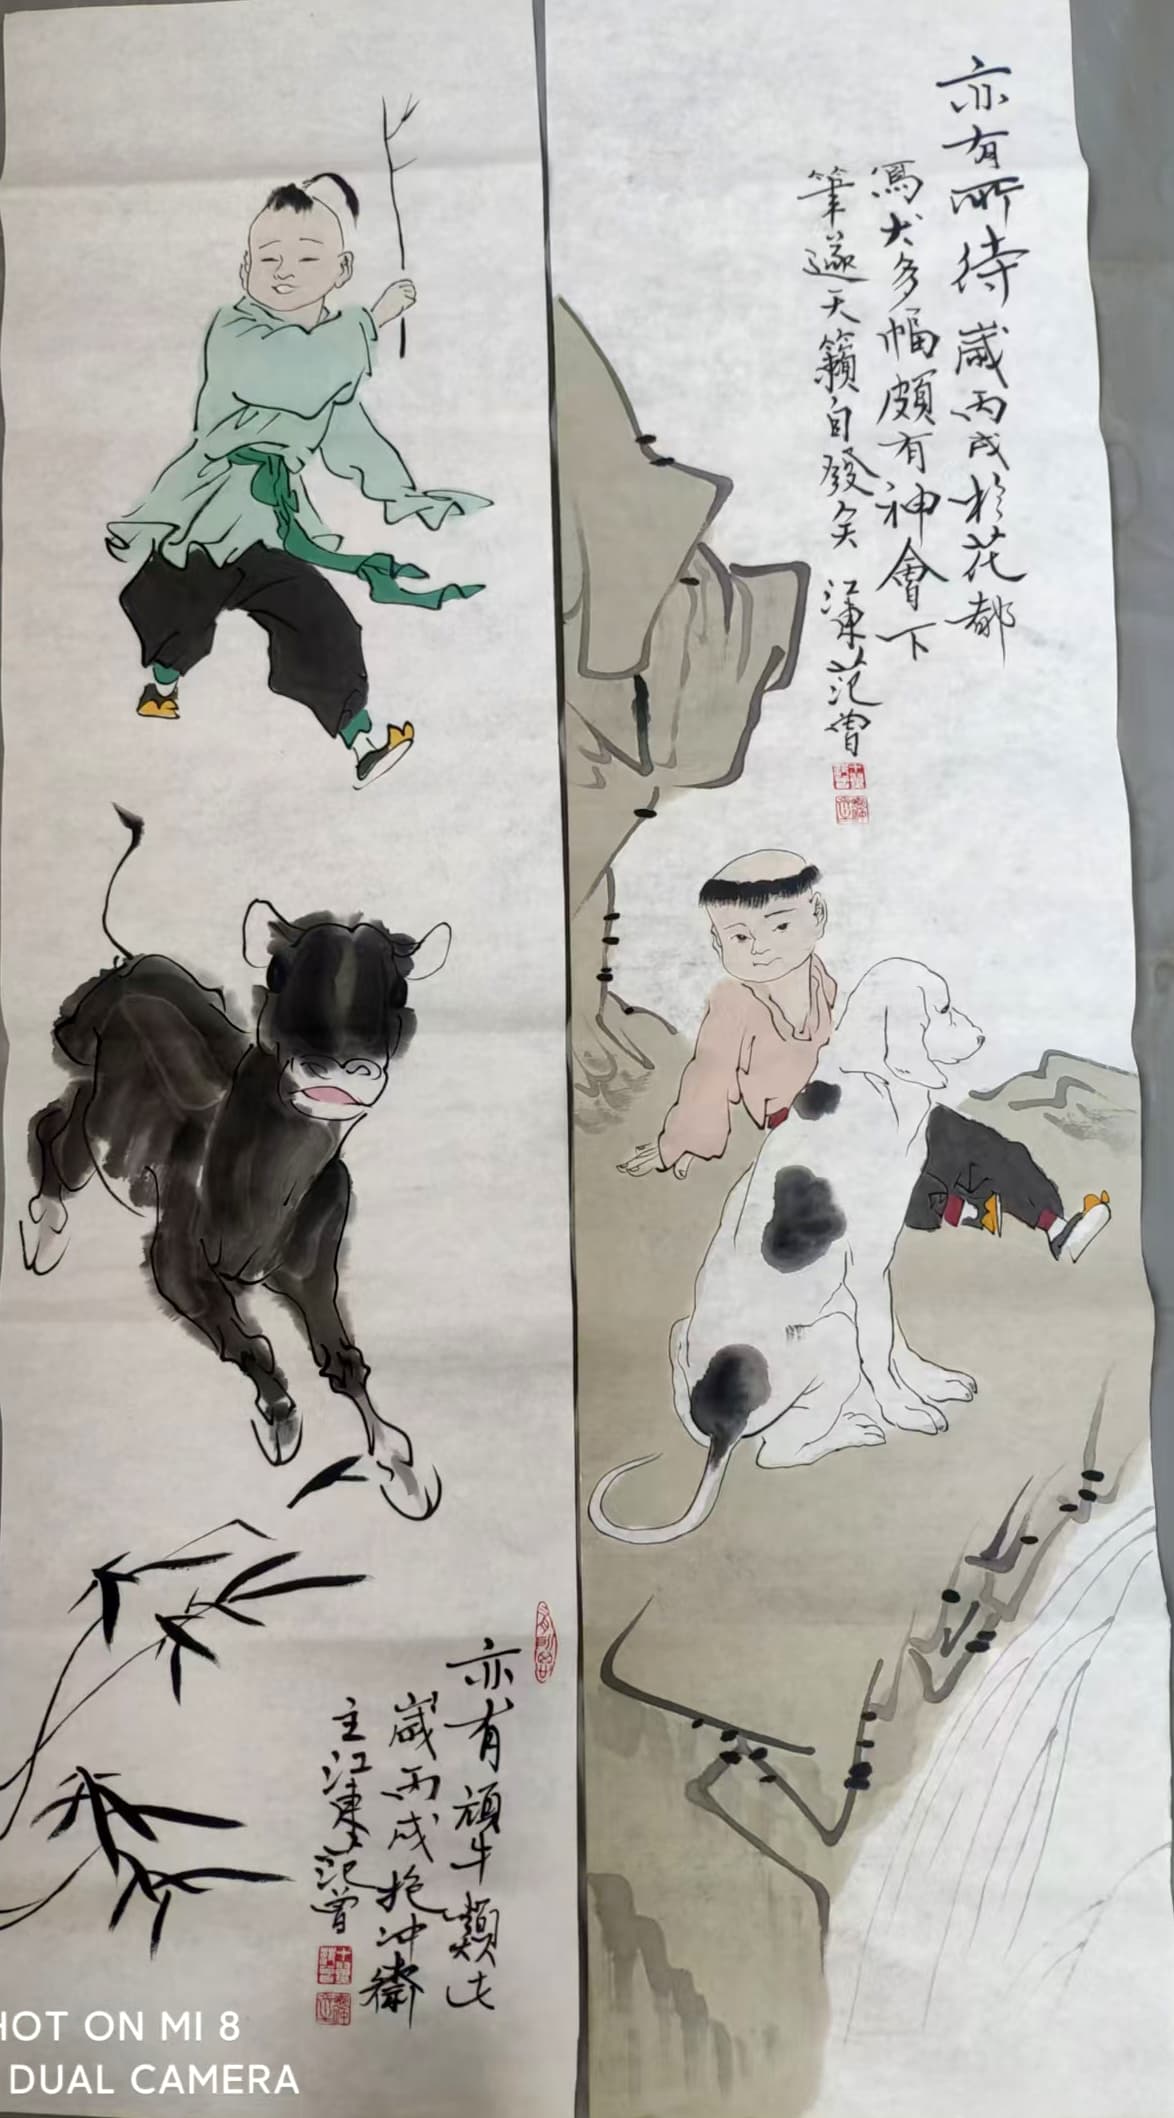 亦有所待 歲丙戌於花都
寫犬多幅頗有神會下
筆遂天籟自發矣 江東范曾
亦有頑牛類此
歲丙戌抱沖齋
主江東范曾
SHOT ON MI 8
DUAL CAMERA